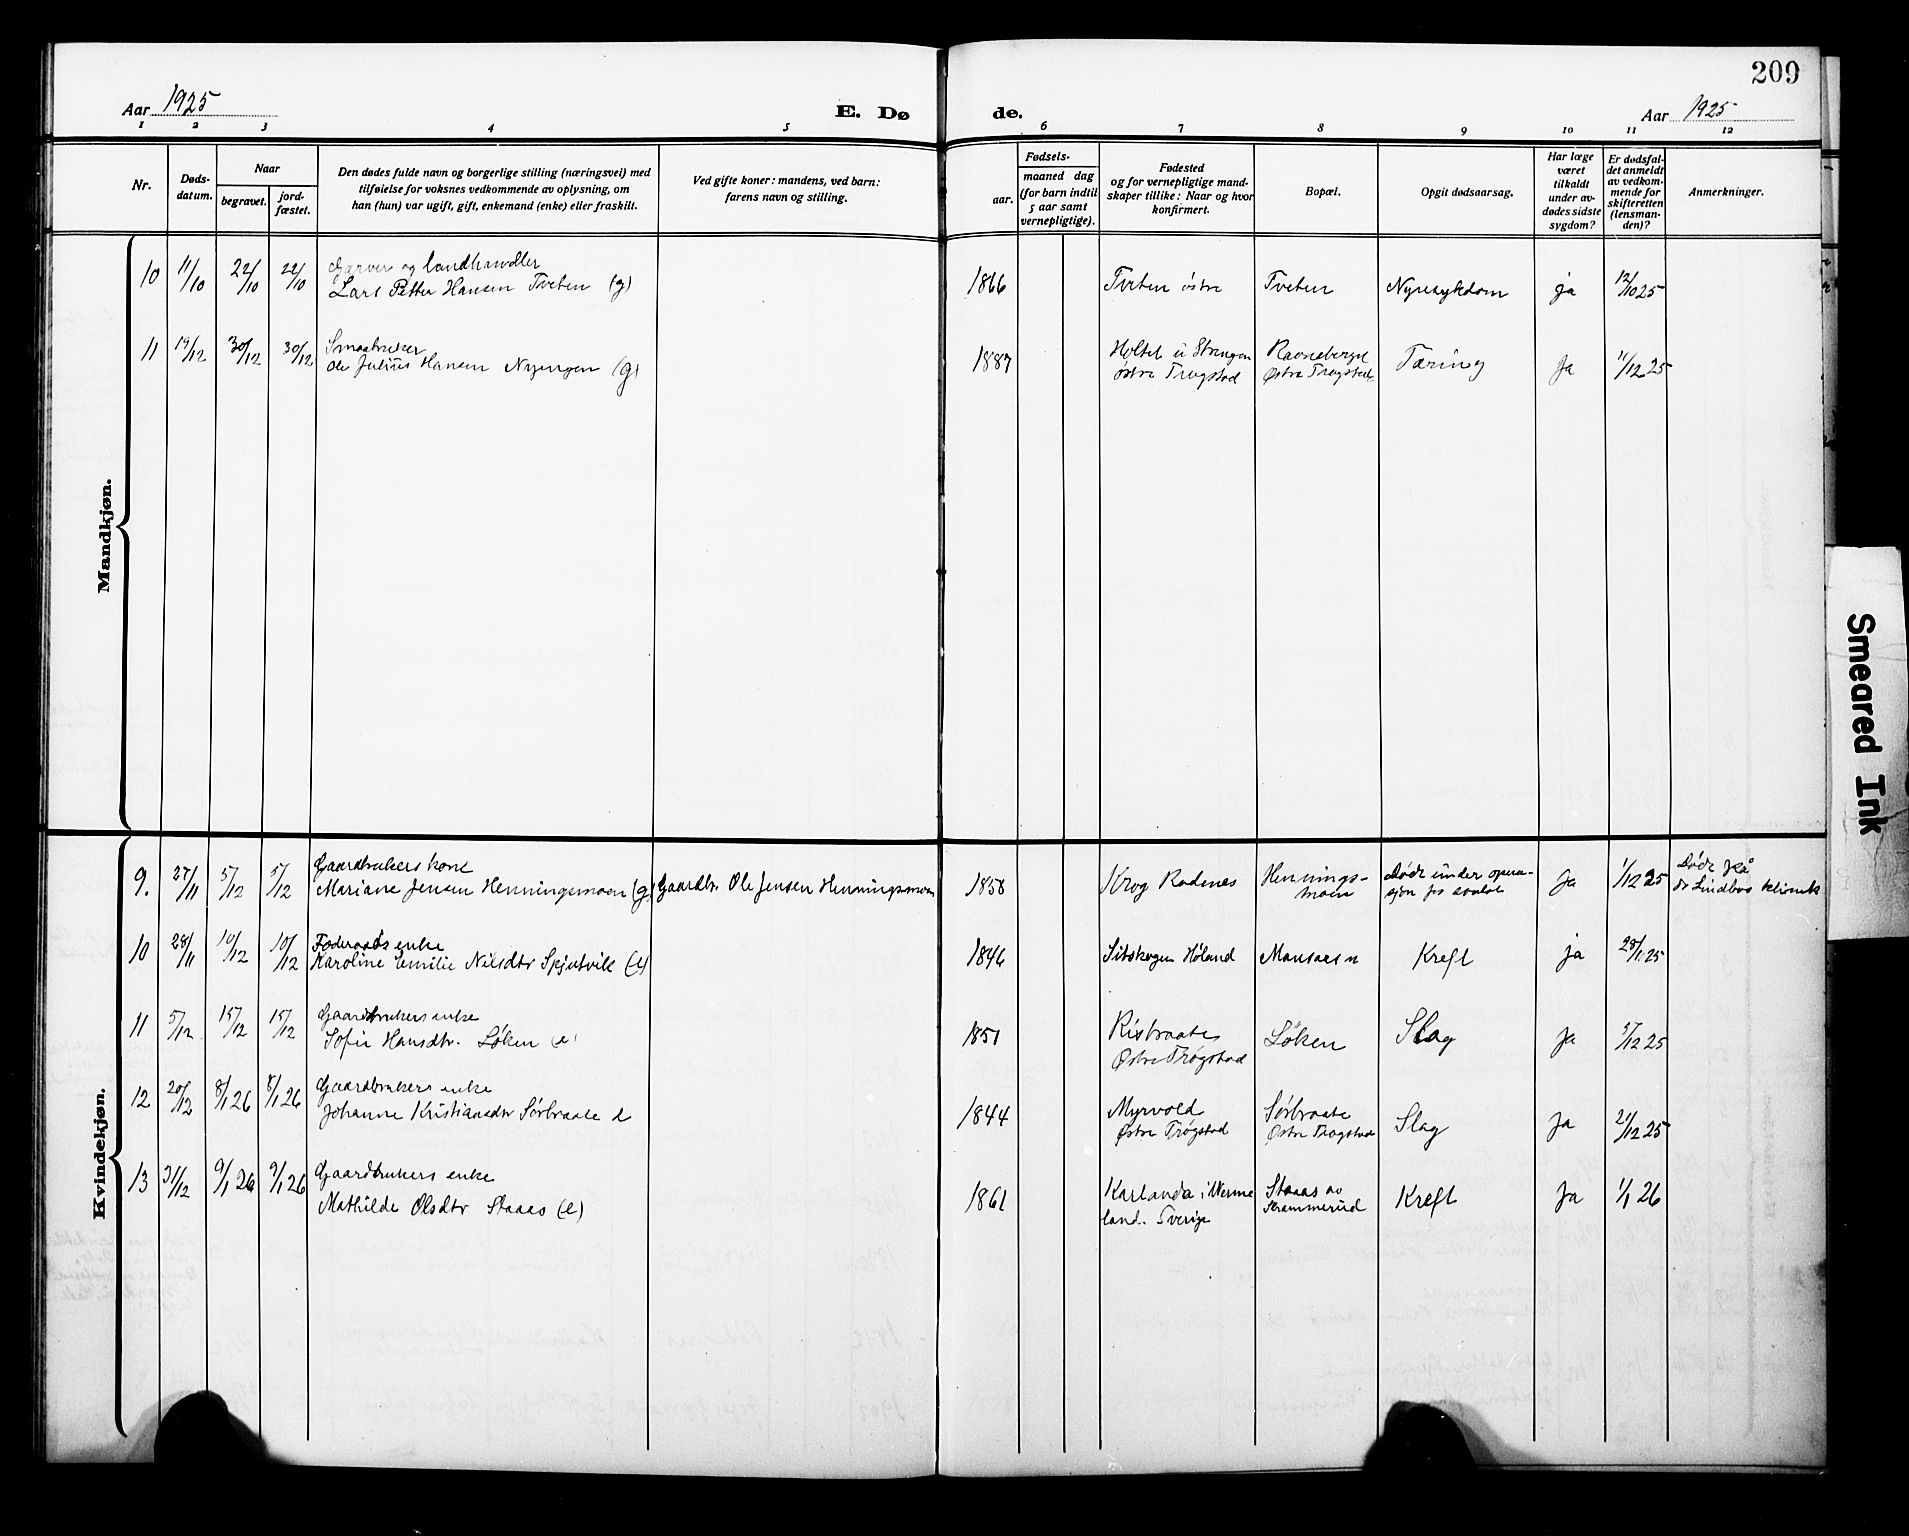 209
Aar 1925
E. Dø
de.
Aar 1925
1 2 3 4 5 6 7 8 9 10 11 12
Nr.
Døds-
datum.
Naar
begravet.
jord-
fæstet.
Den dødes fulde navn og borgerlige stilling (næringsvei) med
tilføielse for voksnes vedkommende av oplysning, om
han (hun) var ugift, gift, enkemand (enke) eller fraskilt.
Ved gifte koner: mandens, ved barn:
farens navn og stilling.
Fødsels-
aar.
maaned dag
(for barn indtil
5 aar samt
vernepligtige).
Fødested
og for vernepligtige mand-
skaper tillike: Naar og hvor
konfirmert.
Bopæl.
Opgit dødsaarsag.
Har læge
været
tilkaldt
under av-
dødes sidste
sygdom?
Er dødsfal-
det anmeldt
av vedkom-
mende for
skifteretten
(lensman-
den)?
Anmerkninger.
Mandkjøn.
10 11/10 22/10 22/10 Garver og landhandler
Lars Petter Hansen Tveten (g) 1866 Tveten østre Tveten Nyresykdom ja 12/10 25
11 19/12 30/12 30/12 Smaabruker
Ole Julius Hansen Nyengen (g) 1887 Holtet u Strengen Ravneberget
østre Trøgstad Østre Trøgstad Tæring Ja 11/12 25
Kvindekjøn.
9. 27/11 5/12 5/12 Gaardbrukers kone
Mariane Jensen Henningsmoen (g) Gaardbr. Ole Jensen Henningsmoen 1858 Krog Rødenes Hennings-
moen Døde under opera-
sjon for Ja 1/12 25 Døde på
dr Lindboes klinik
10 28/11 10/12 10/12 Føderaads enke
Karoline Emilie Nilsdtr Skjutvik (e) 1846 Sitskogen Høland Kreft ja 28/11 25
11 5/12 15/12 15/12 Gaardbrukers enke
Sofie Hansdtr. Løken (e) 1851 Risbraate
Østre Trøgstad Løken Slag Ja 5/12 25
12 20/12 8/1 26 8/1 26 Gaardbrukers enke
Johanne Kristiansdtr Sørbraate e 1844 Myrvold
Østre Trøgstad Sørbraate
Østre Trøgstad Slag Ja 21/12 25
13 31/12 9/1 26 9/1 26 Gaardbrukers enke
Mathilde Olsdtr Staaas (e) 1861 Karlanda i Werme
land. Sverige Staaas av
Skrammerud Kreft Ja 1/1 26
Smeared Ink